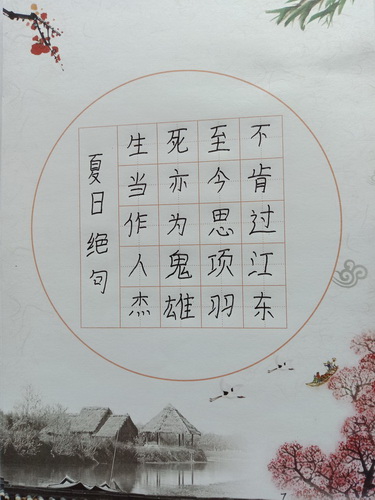 夏日绝句
生当作人杰
死亦为鬼雄
至今思项羽
不肯过江东
7